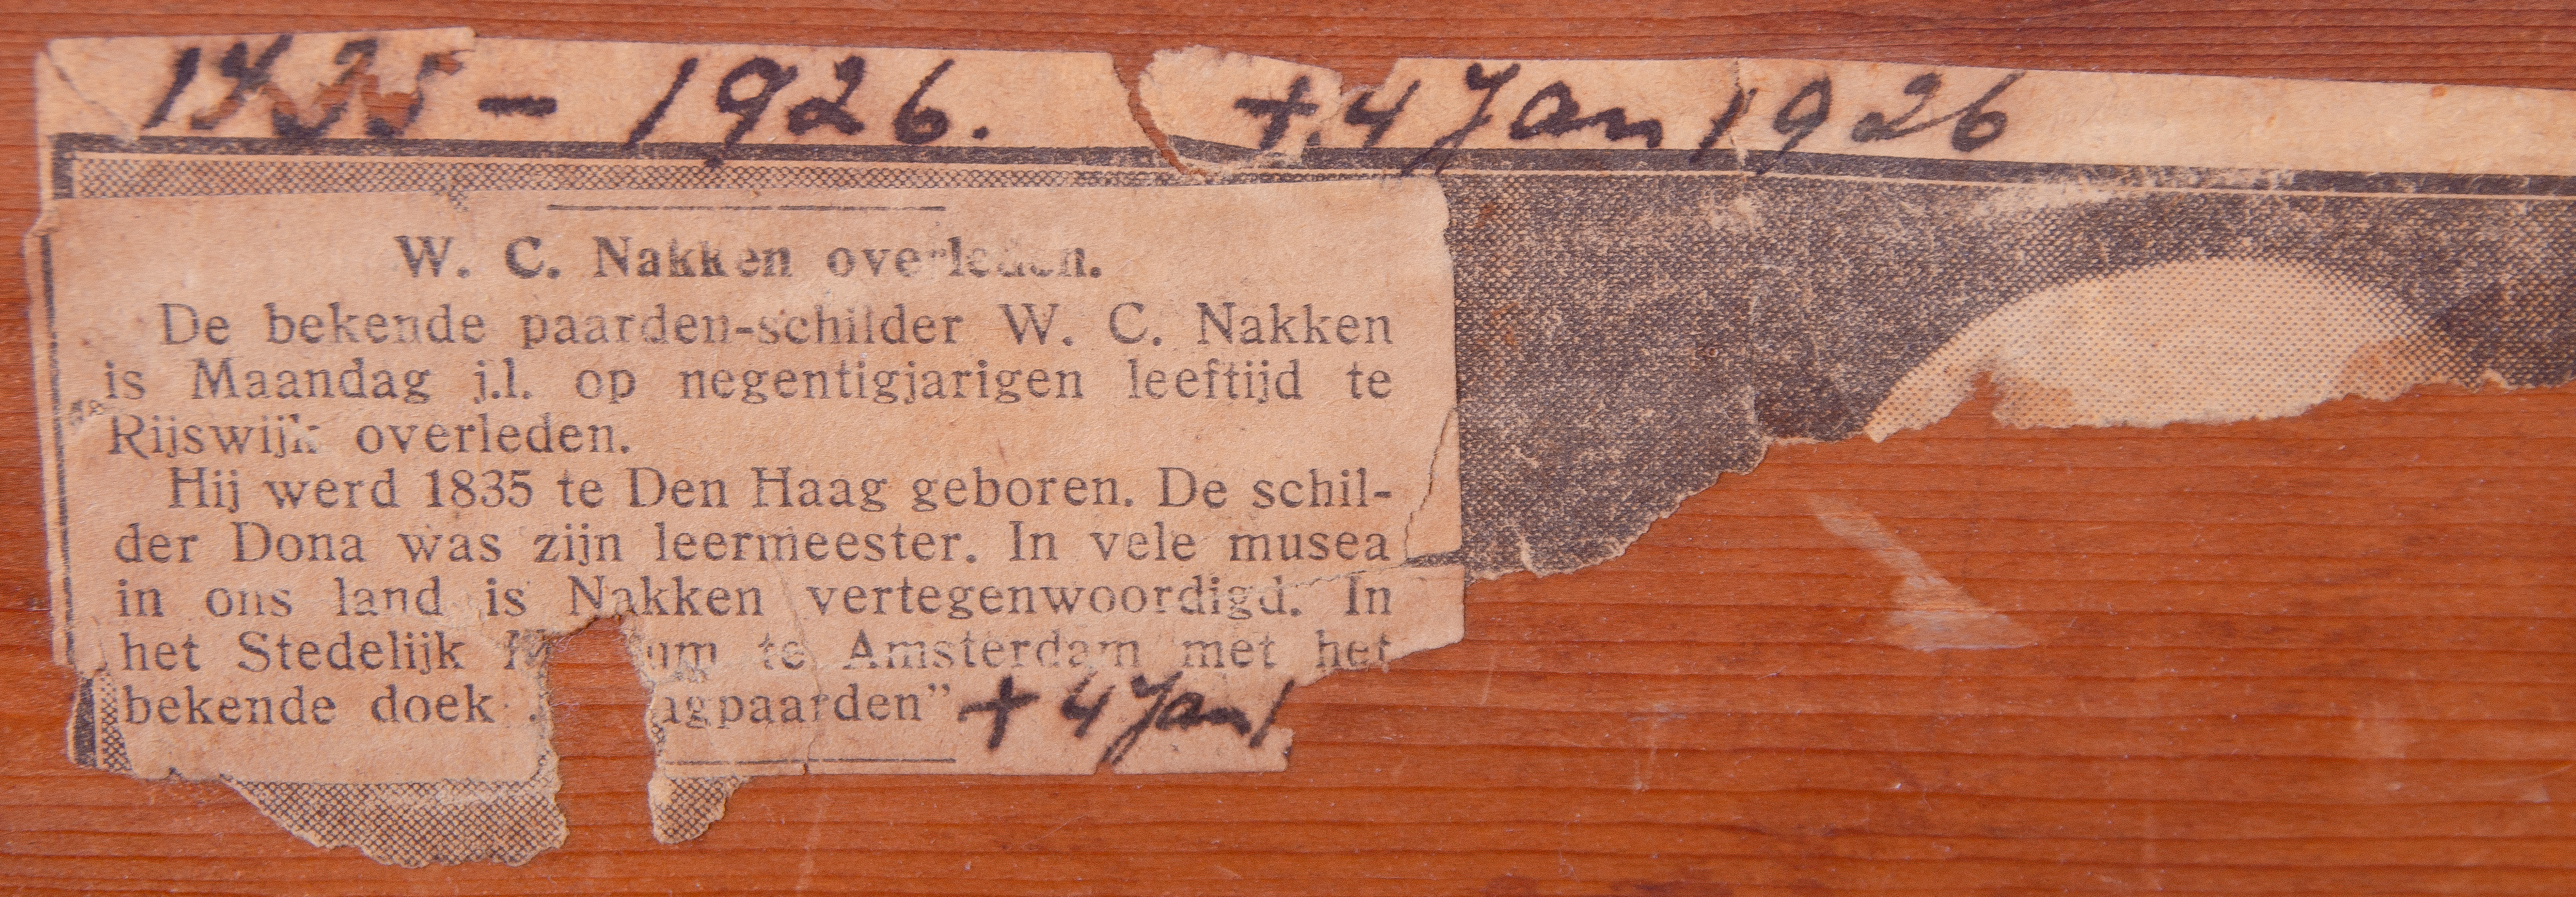 1835 - 1926. + 4 Jan 1926
W. C. Nakken overleden.
De bekende paarden-schilder W. C. Nakken
is Maandag j.l. op negentigjarigen leeftijd te
Rijswijk overleden.
Hij werd 1835 te Den Haag geboren. De schil-
der Dona was zijn leermeester. In vele musea
in ons land is Nakken vertegenwoordigd. In
het Stedelijk te Amsterdam met het
bekende doek agpaarden” + 4 Jan